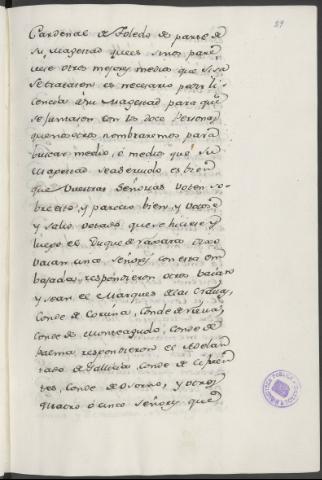 29
Cardenal de Toledo de parte de
su Magestad pues sinos pare
ciese otros mejores medios que si se
se tratasen es necesario pedir li
cencia a su Magestad para que
se juntasen con las doce Personas
que nosotros nombraremos para
buscar medio, ó medios que su
Magestad sea servido, es bien
que vuestras Señorias voten so-
bre esto, y parecio bien, y votose
y salio votado que se hiciese y
luego el Duque de Naxara dixo
vaian cinco Señores con esta em
bajada, respondieron otros vaian
y sean el Marques de las Navas,
Conde de Coruña, Conde de Nieva,
Conde de Monteagudo, Conde de
Palma, respondieron el Adelan
tado de Galicia, Conde de Cifuen
tes, Conde de Osorno, y otros
quatro ó cinco Señores que
BIBLIOTECA PUBLICA
TOLEDO